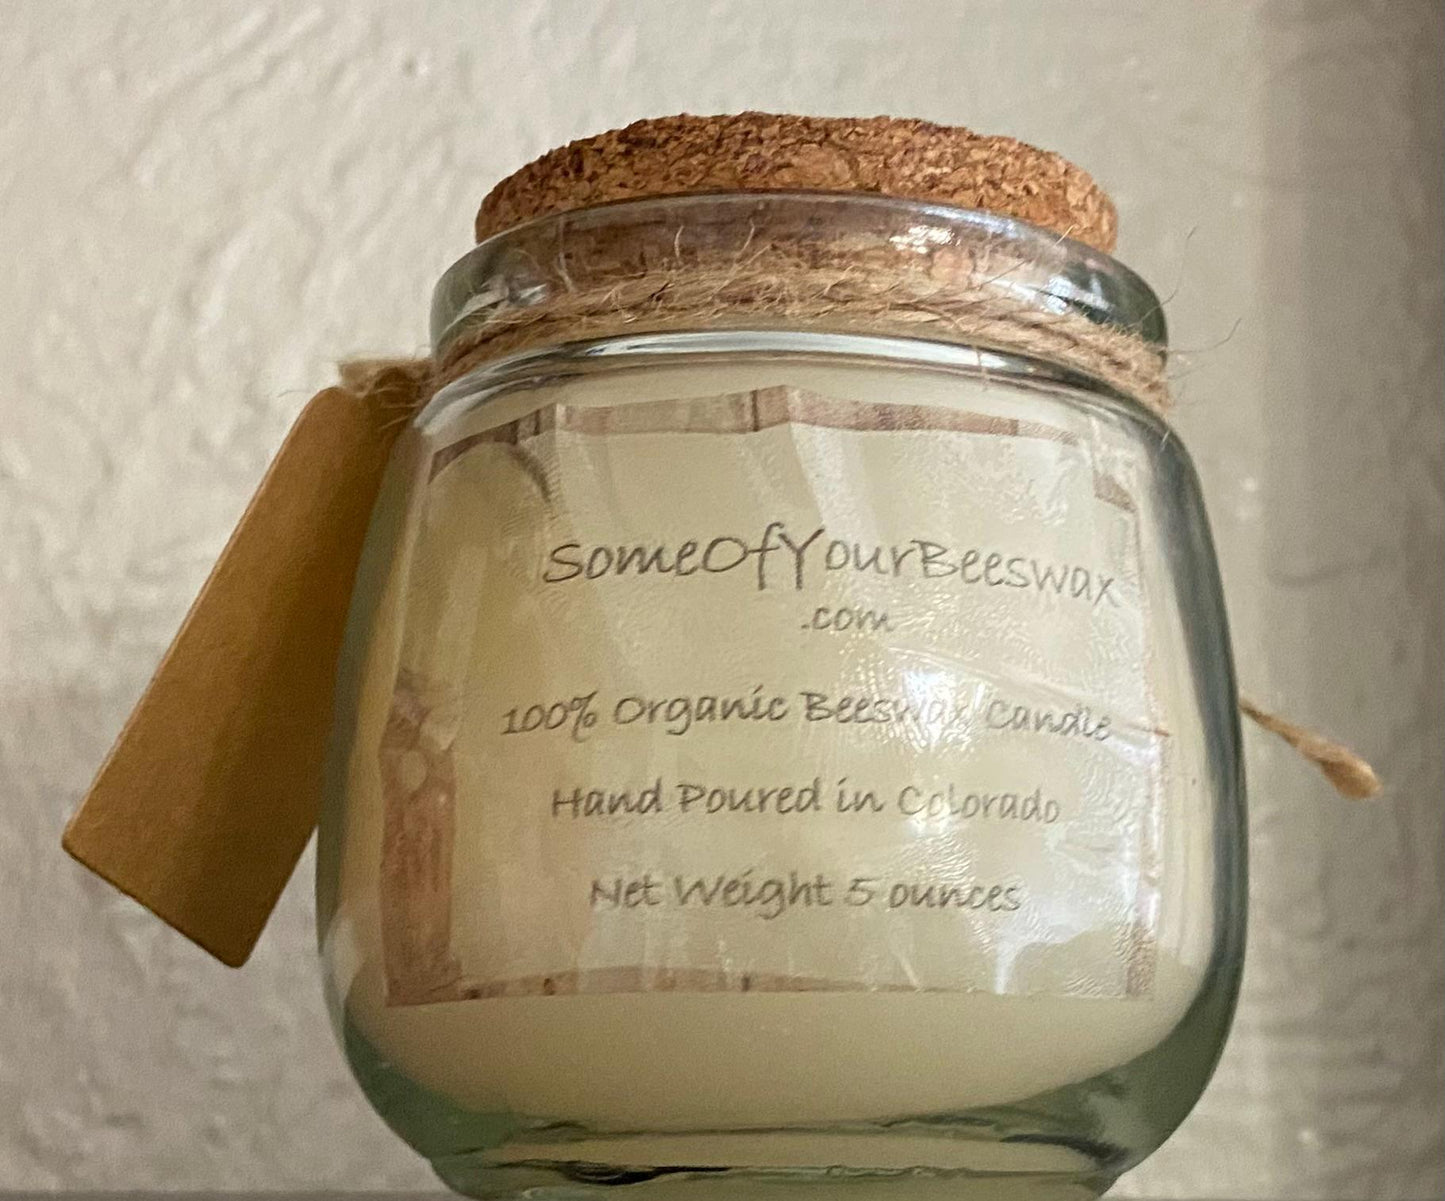 SomeOfYourBeeswax
.com
100% Organic Beeswax Candle
Hand Poured in Colorado
Net Weight 5 ounces